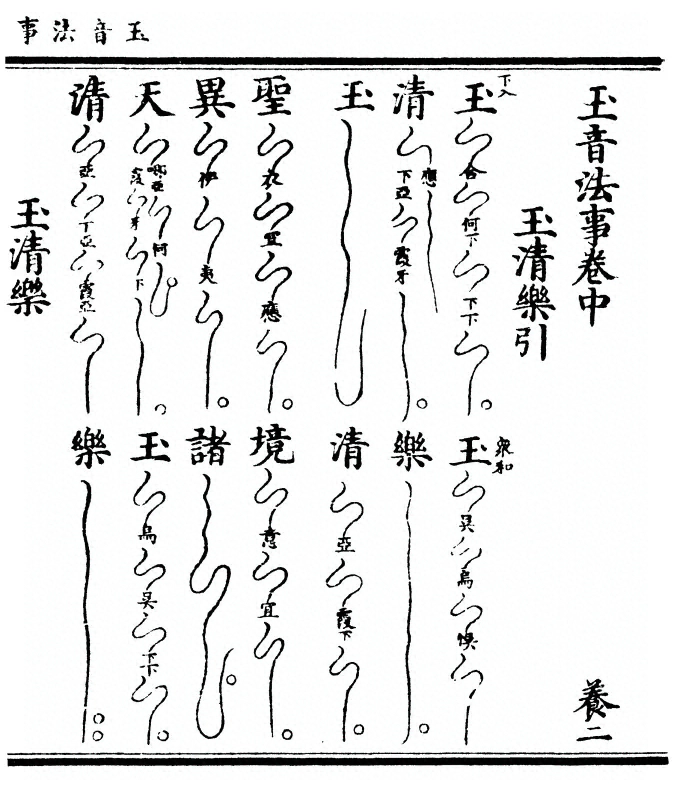 玉音法事
玉音法事卷中 養二
玉清樂引
下入 玉 合 何下 下下 衆和 玉 吴 烏 悞
清 應 下亞 霞牙 樂
玉 清 亞 霞下
聖 衣 宜 應 境 意 宜
異 伊 夷 諸
天 亞 何 霞 牙 下 玉 烏 吴 下下
清 亞 下亞 霞亞 樂
玉清樂